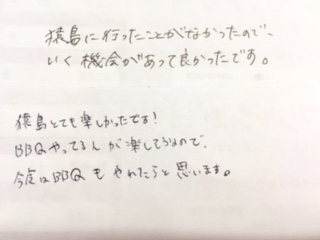 猿島に行ったことがなかったので、
いく機会があって良かったです。
猿島とても楽しかったです!
BBQやってる人が楽しそうなので、
今度はBBQもやれたらと思います。